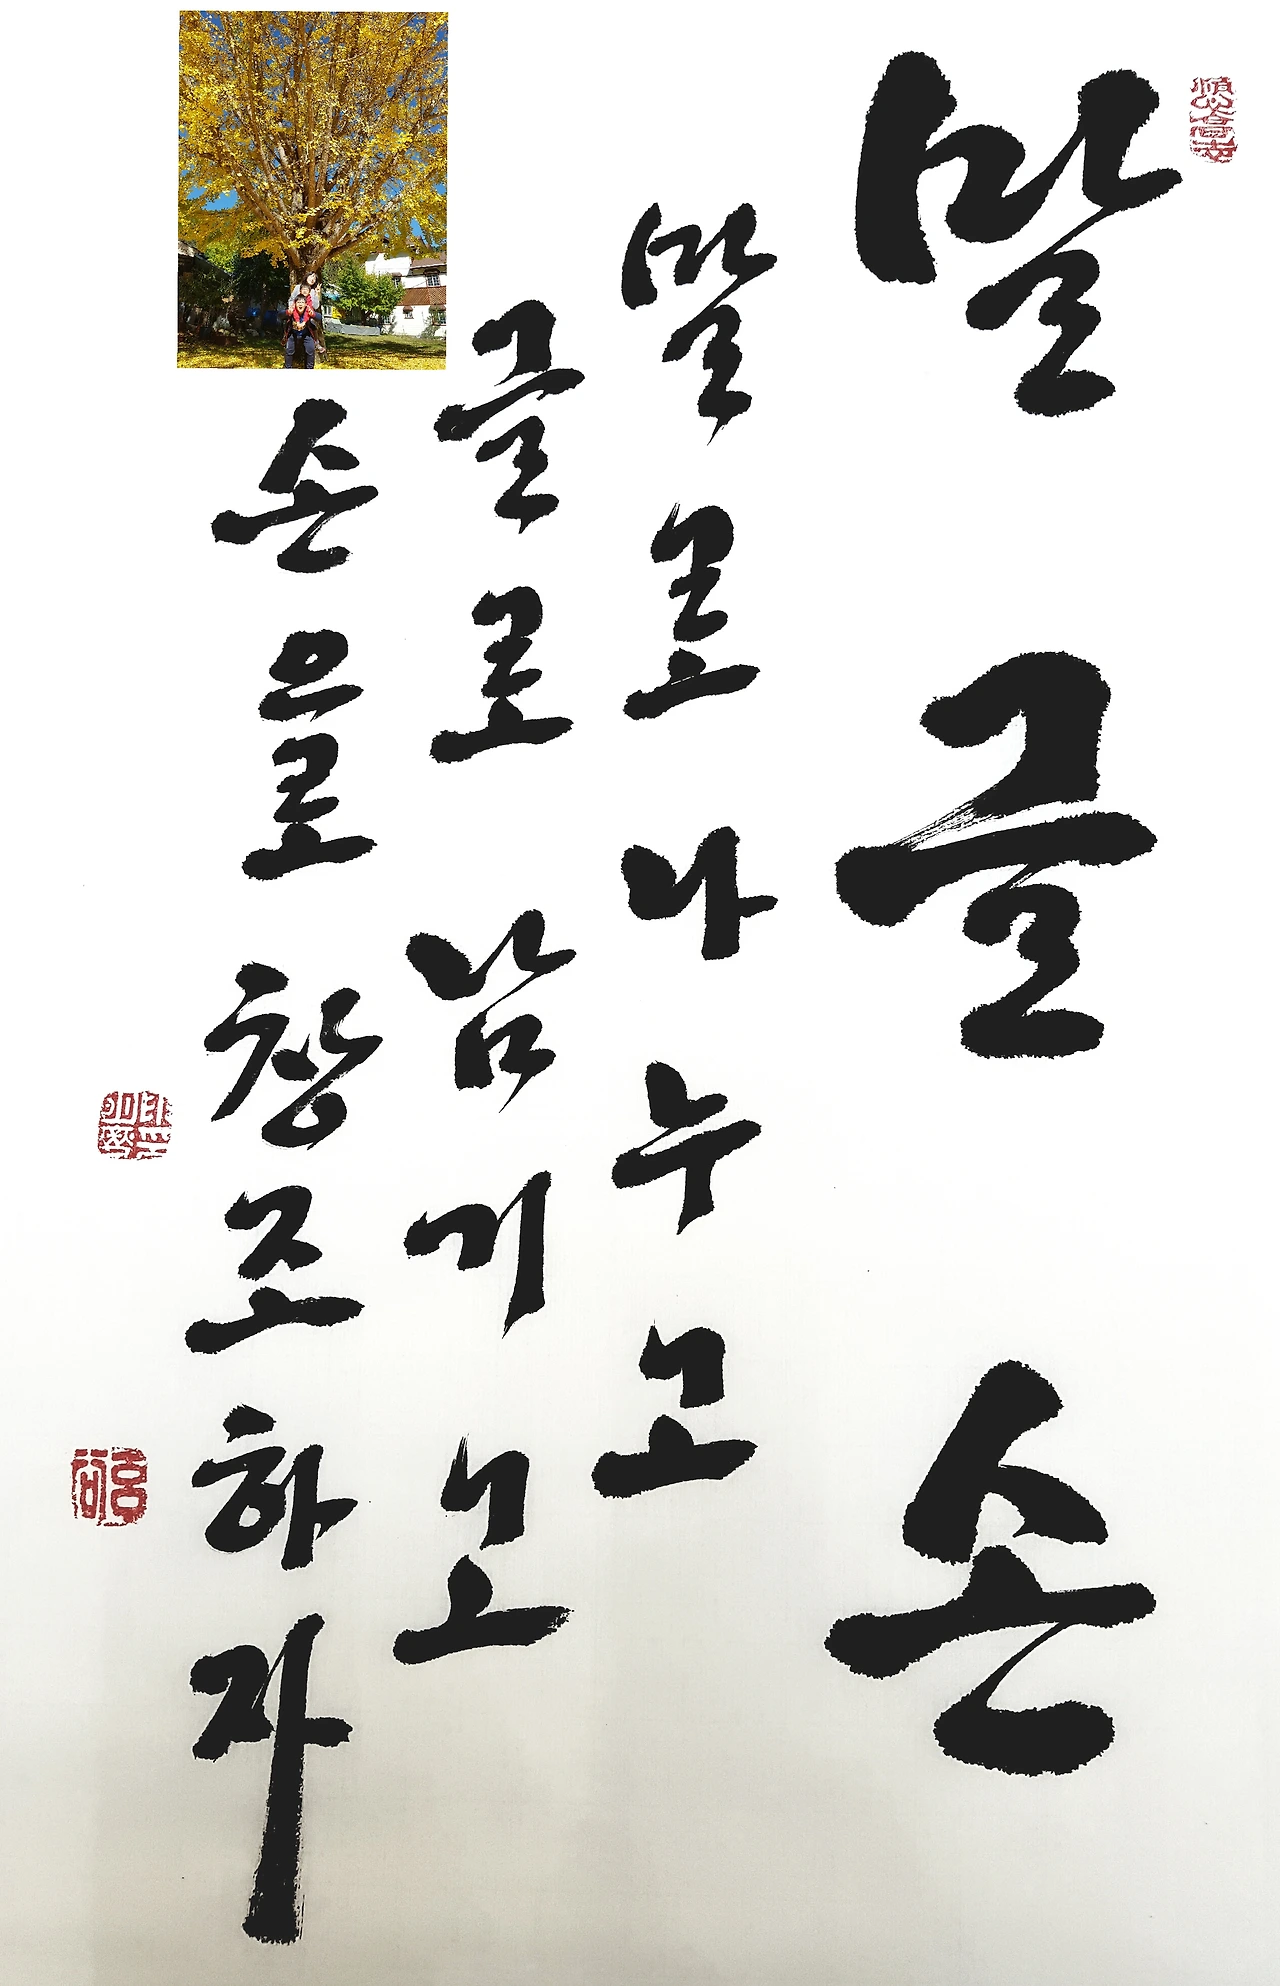 말 글 손
말로 나누고
글로 남기고
손으로 창조하자